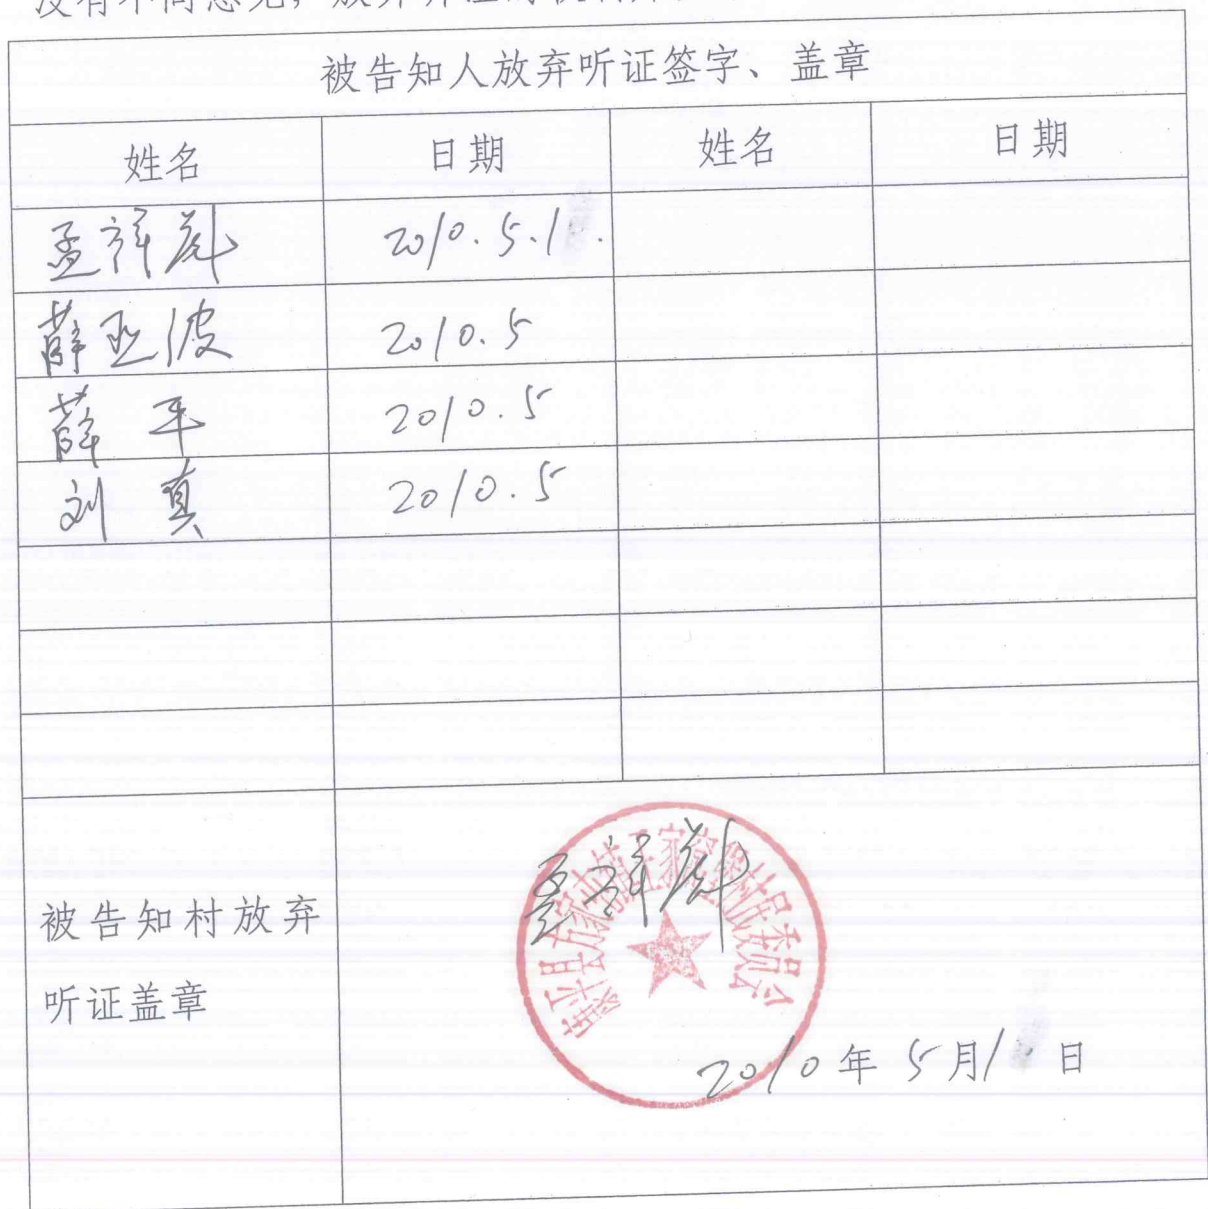 被告知人放弃听证签字、盖章
姓名 日期 姓名 日期
孟祥彪 2010.5.1
薛亚波 2010.5
薛平 2010.5
刘真 2010.5
被告知村放弃
听证盖章
孟祥彪
村民委员会
2010年5月1日